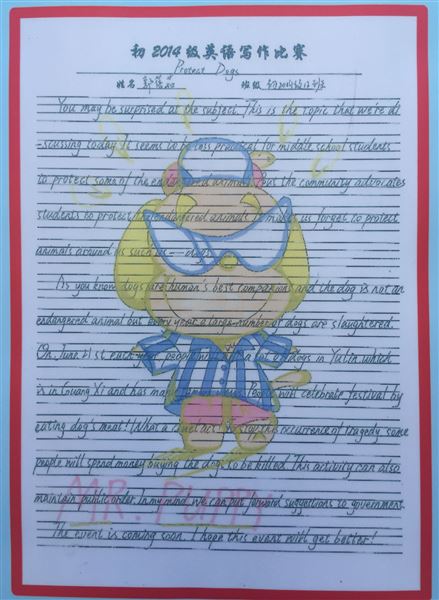 初2014级英语写作比赛
Protect Dogs
姓名 班级 初2014级12班
You may be surprised at the subject. This is the topic that we're di
-scussing today. It seems to be less practical for middle school students
to protect some of the endangered animals. But the community advocates
students to protect the endangered animals. It makes us forget to protect
animals around us such as — dogs
As you know dogs are human's best companions and the dog is not an
endangered animal but every year a large number of dogs are slaughtered.
On June 21st each year people will a lot of dogs in Yulin which
is in Guang Xi and has many People will celebrate festival by
eating dog's meat! What a cruel occurrence of tragedy, some
people will spend money buying the dogs to be killed. This activity can also
maintain public order. In my mind, we can put forward suggestions to government.
The event is coming soon. I hope this event will get better!
MR. PUPPY